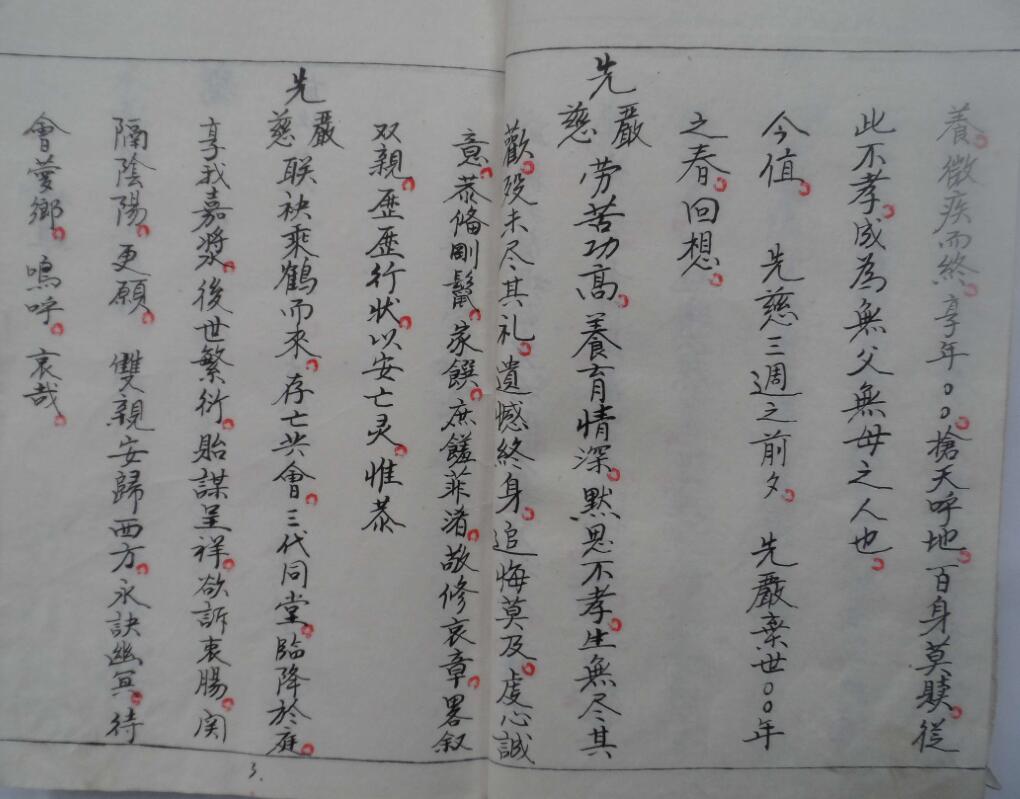 養。微疾而終。享年○○。搶天呼地。百身莫贖。從
此不孝。成為無父無母之人也。
今值。 先慈三週之前夕。 先嚴棄世○○年
之春。回想。
先嚴慈劳苦功高。養育情深。默思不孝。生無尽其
歡。殁未尽其礼。遺憾終身。追悔莫及。虔心誠
意。恭俻剛鬣。家饌。庶饈菲渚。敬修哀章。畧叙
双親。歷歷行状。以安亡灵。惟恭
先嚴慈联袂乘鶴而來。存亡共會。三代同堂。臨降於庭。
享我嘉漿。後世繁衍。貽謀呈祥。欲訴衷腸。関
隔陰陽。更願。 雙親安歸西方。永訣幽冥。待
會夢鄉。嗚呼。哀哉。
3.